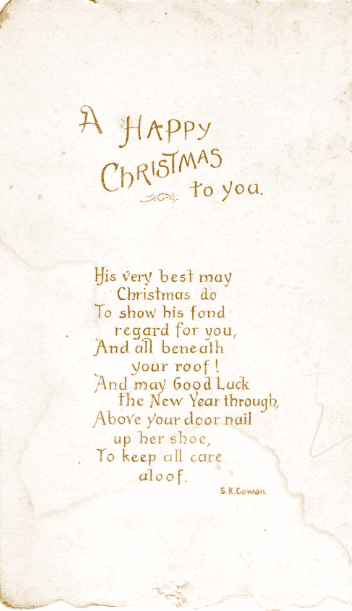 A HAPPY
CHRISTMAS
to you.
His very best may
Christmas do
To show his fond
regard for you,
And all beneath
your roof!
And may Good Luck
the New Year through,
Above your door nail
up her shoe,
To keep all care
aloof.
S.K.Cowan.